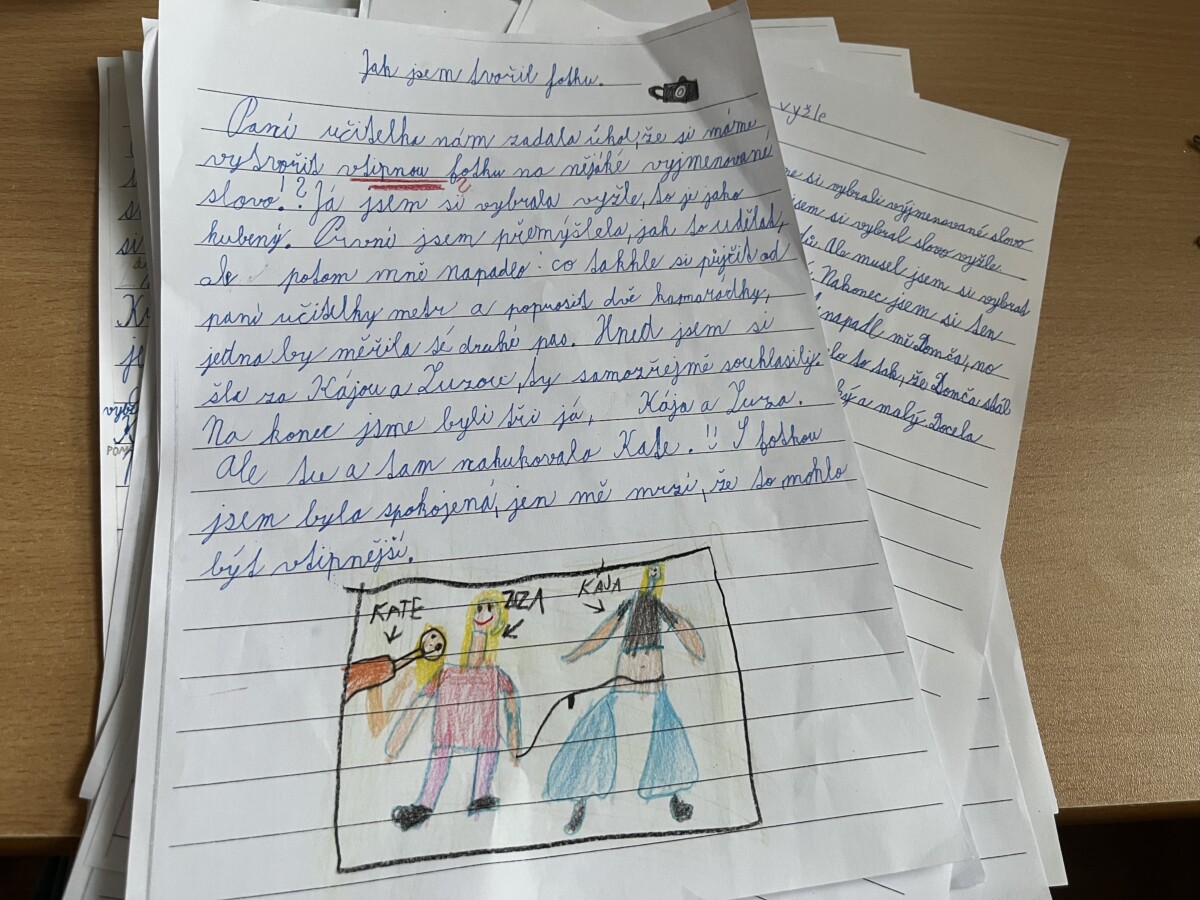 Jak jsem tvořil fotku.
Paní učitelka nám zadala úkol, že si máme
vytvořit vtipnou fotku na nějaké vyjmenované
slovo!? Já jsem si vybrala vyžle, to je jako
hubený. První jsem přemýšlela, jak to udělat,
ale potom mně napadlo: co takhle si půjčit od
paní učitelky metr a poprosit dvě kamarádky,
jedna by měřila té druhé pas. Hned jsem si
šla za Kájou a Zuzou, ty samozřejmě souhlasily.
Na konec jsme byli tři já, Kája a Zuza.
Ale tu a tam nakukovala Kate. !! S fotkou
jsem byla spokojená, jen mě mrzí, že to mohlo
být vtipnější.
KATE
ZZA
KÁJA
vyžle
me si vybrali vyjmenované slovo
jsem si vybral slovo vyžle.
Ale musel jsem si vybrat
Nakonec jsem si ten
napadl mě Domča, no
to tak, že Domča stál
a malý. Docela